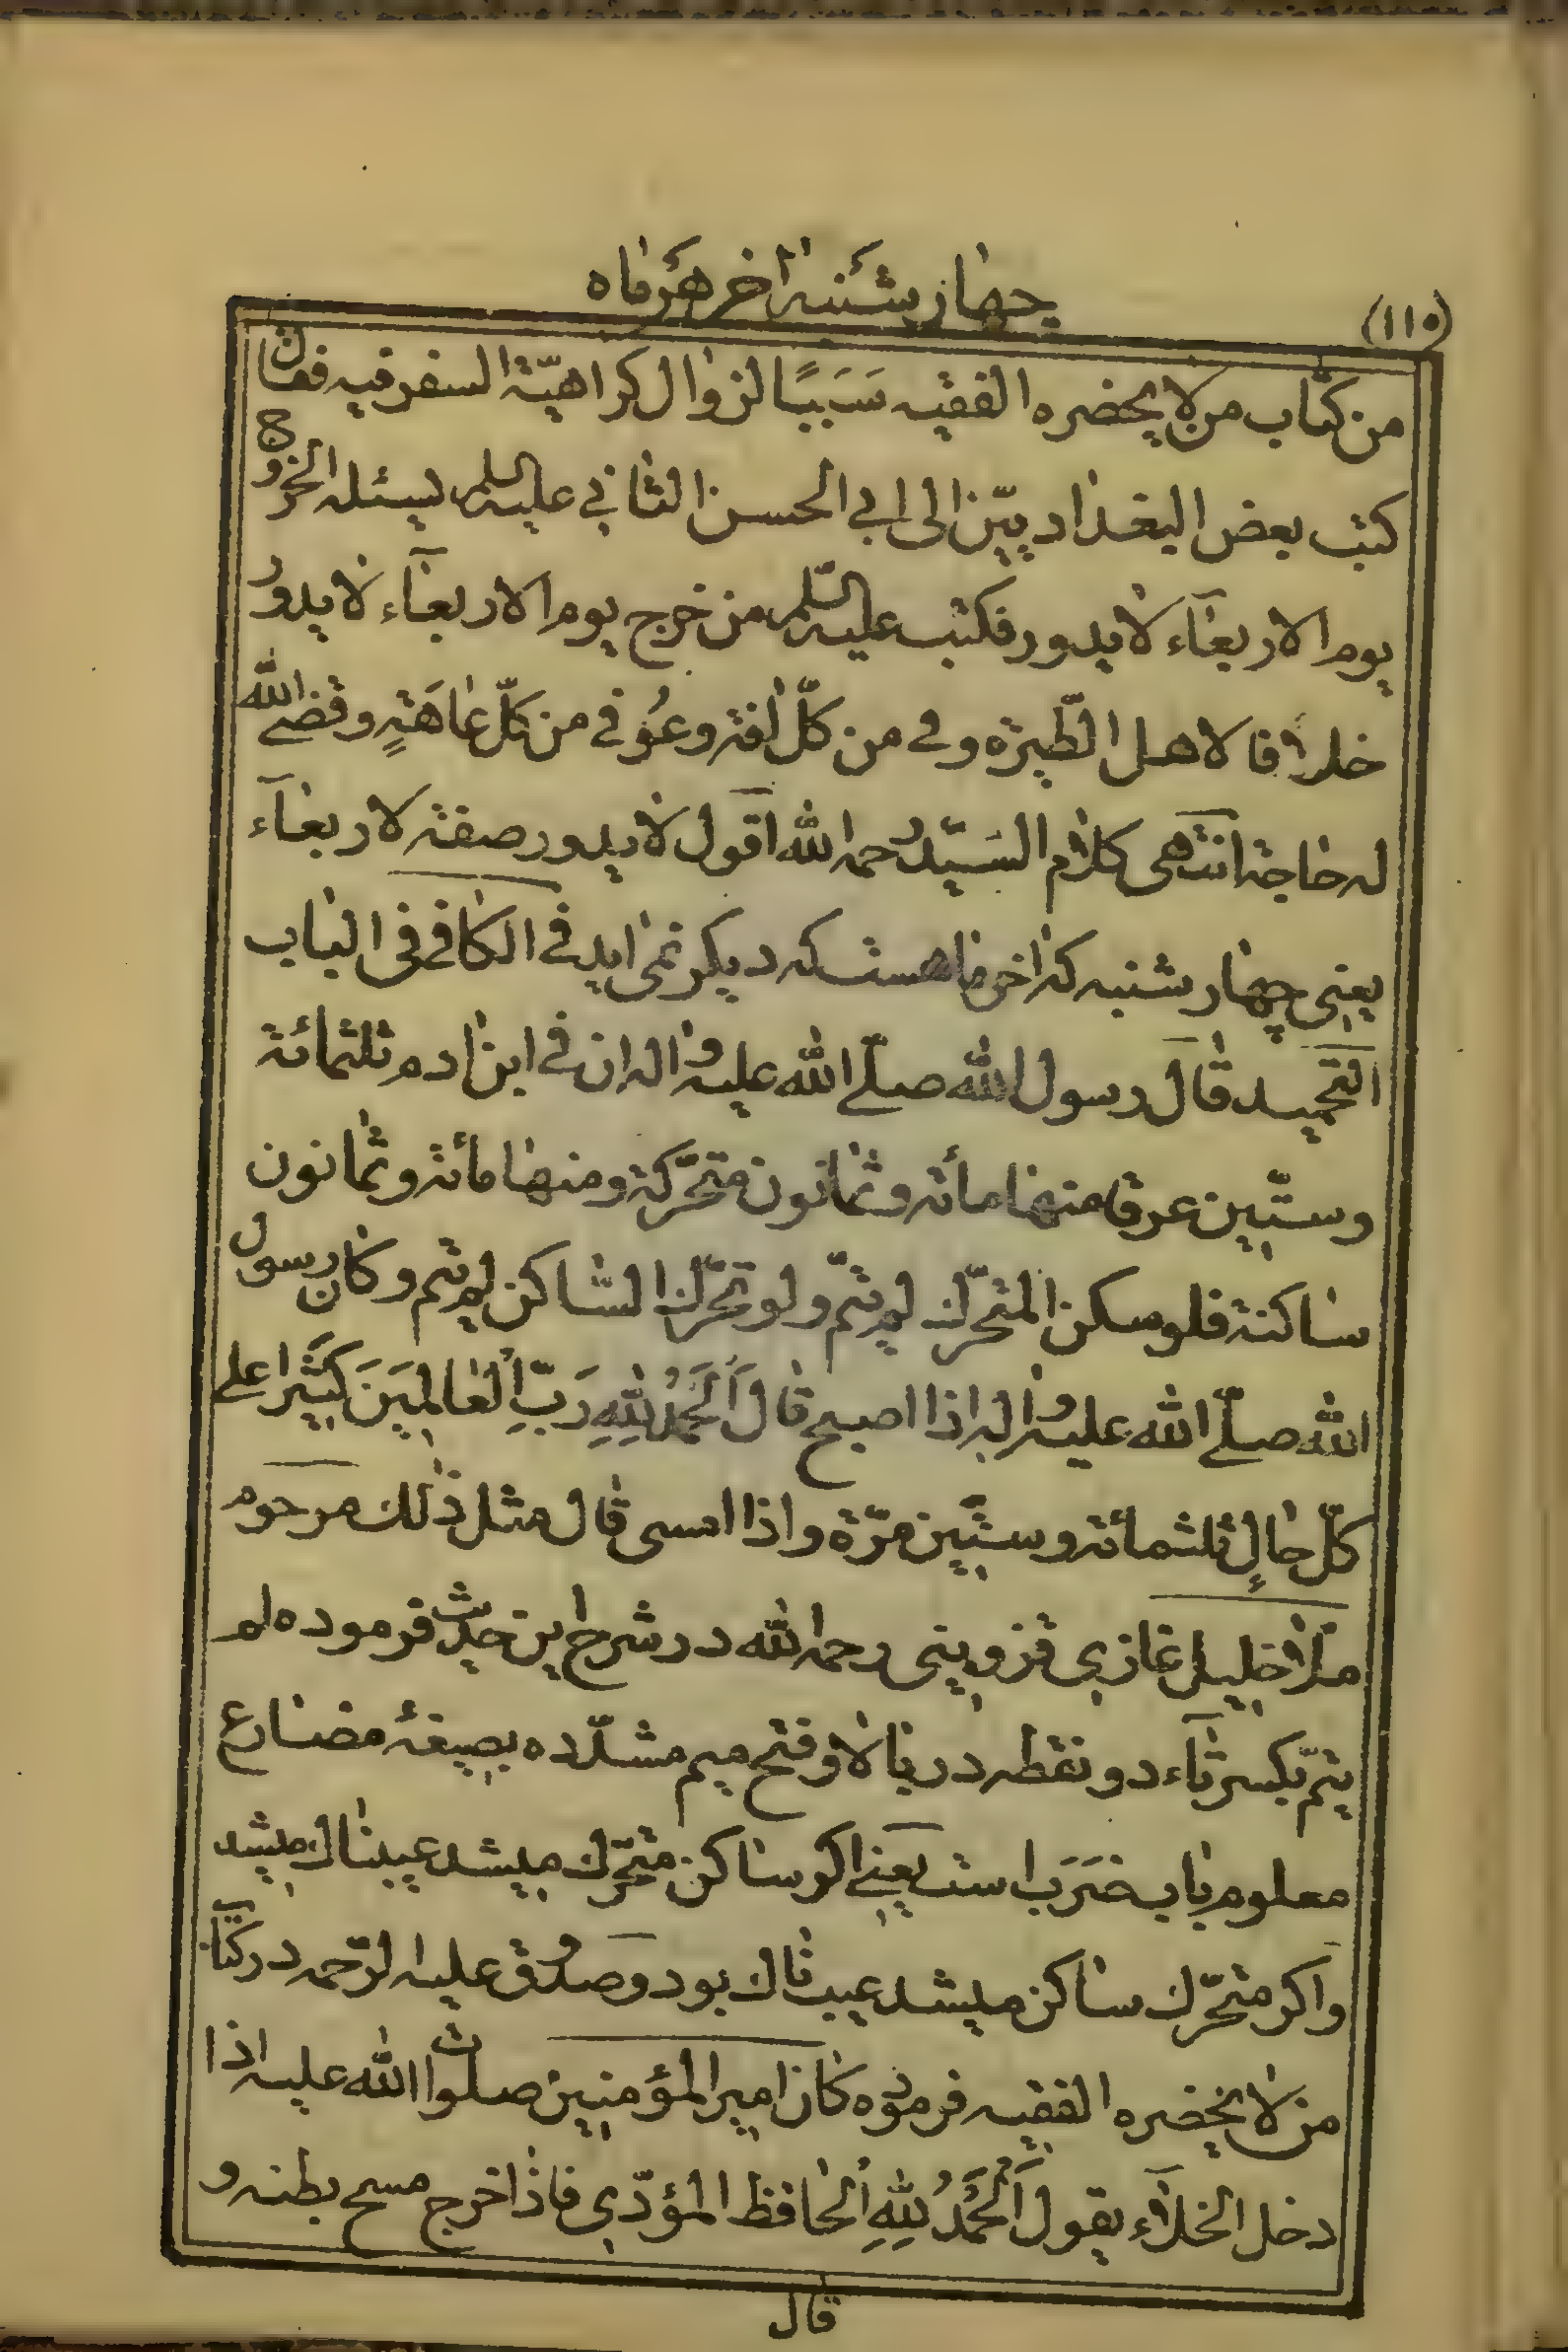 چهار شنبه اخر هر ماه
(۱۱۵)
من كتاب من لا يحضره الفقيه سَبَبًا لزوال كراهيّة السفر فيه فقال
كتب بعض البغداديّين الى ابي الحسن الثاني عليه السلم يسئله الخروج
يوم الاربعآء لا يدور فكتب عليه السّلم من خرج يوم الاربعآء لا يدور
خلافا لاهل الطّيرة وقى من كلّ افة وعُوفى من كلّ عاهَةٍ وقضى الله
له حاجة انتهى كلام السَيّد رحمه الله اقول لا يدور صفة لاربعآء
يعنى چهار شنبه كه اخر ماهست كه ديكر نمى ايد فى الكافى فى الباب
التحميد قال رسول الله صلّى الله عليه واله ان فى ابن ادم ثلثمائة
وستّين عرقا منها مائة وثمانون متحرّكة ومنها مائة وثمانون
ساكنة فلو سكن المتحرّك لم يتمّ ولو تحرّك السّاكن لم يتم وكان رسول
الله صلّى الله عليه واله اذا اصبح قال اَلْحَمْدُ لِلّٰهِ رَبِّ الْعالَمِينَ كَثيرًا على
كلّ حالٍ ثلثمائة وستّين مرّة واذا امسى قال مثل ذٰلك مرحوم
ملا خليل غازى قزوينى رحمه الله در شرح اين حديث فرموده لم
يتمّ بكسر تآء دو نقطه در بالا و فتح ميم مشدّده بصيغهٔ مضارع
معلوم باب ضَرَبَ است يعنى اكر ساكن متحرّك ميشد عيبناك ميشد
واكر متحرّك ساكن ميشد عيب ناك بود وصدوق عليه الرّحمه در كتاب
من لا يحضره الفقيه فرموده كان امير المؤمنين صلوات الله عليه اذا
دخل الخلآء يقول اَلْحَمْدُ لِلّٰهِ الْحافظ المؤدّى فاذا خرج مسح بطنه و
قال